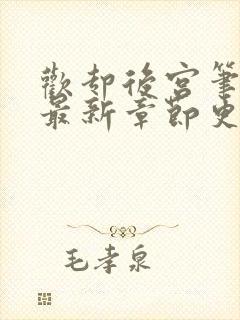 歡却後宮筆
最新章節史
毛孝泉